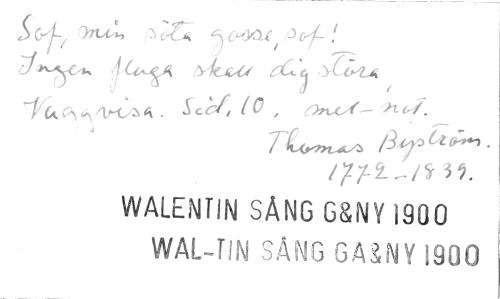 Sof, min söta gosse, sof!
Ingen fluga skall dig störa,
Vaggvisa. Sid. 10, mel-not.
Thomas Byström.
1772-1839.
WALENTIN SÅNG G&NY 1900
WAL-TIN SÅNG GA&NY 1900